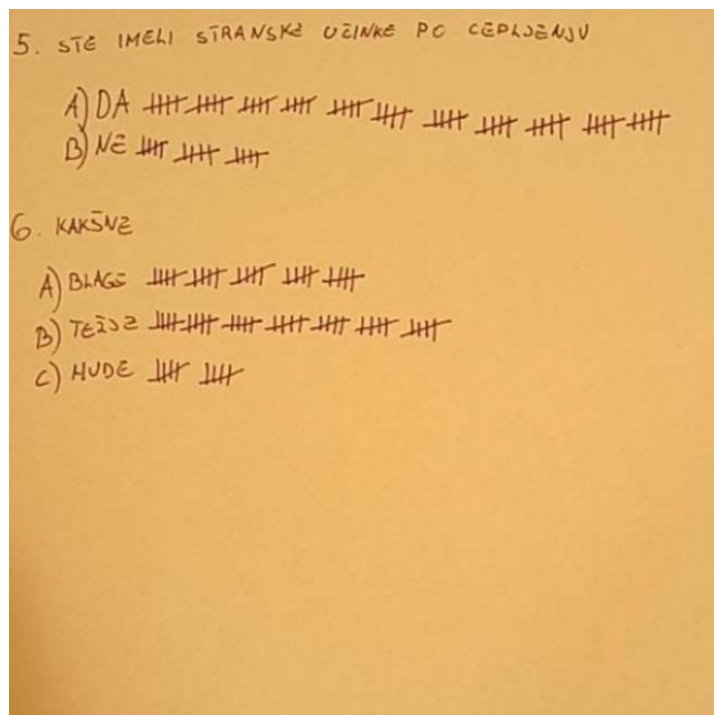 5. STE IMELI STRANSKE UČINKE PO CEPLJENJU
A) DA 卌 卌 卌 卌 卌 卌 卌 卌 卌 卌 卌
B) NE 卌 卌 卌
6. KAKŠNE
A) BLAGE 卌 卌 卌 卌 卌
B) TEŽJE 卌 卌 卌 卌 卌 卌 卌
C) HUDE 卌 卌